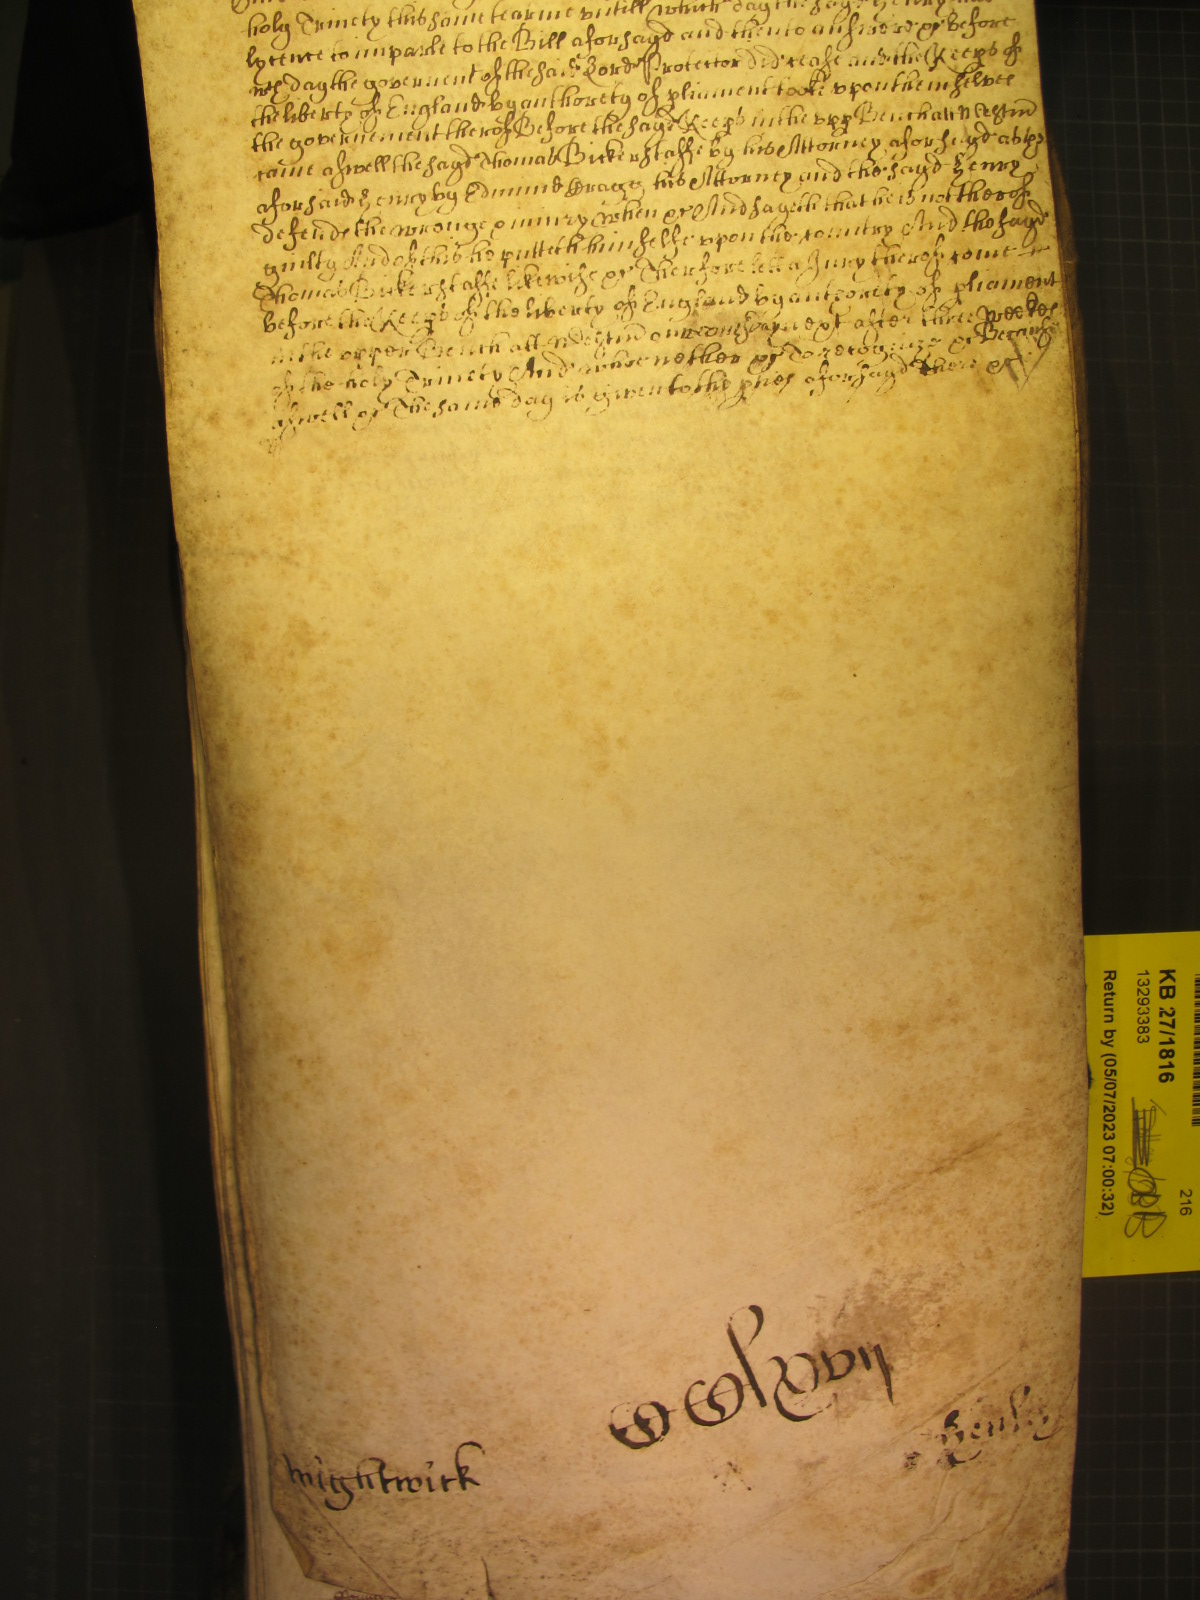 holy Trinety this same tearme untill which day the sayd Henry had
lycence to imparle to the Bill aforsayd and then to answere &c Before
wch day the goverment of the said Lord Protector did cease and the Keeps of
the liberty of England by anthorety of pliament tooke upon themselves
the governement therof Before the sayd Keeps in the upp Bench att Westm
came aswell the sayd Thomas Bickerstaffe by his Attorney aforsayd as the
aforsaid Henry by Edmund Bragg his Attorney and the sayd Henry
defends the wronge & iniury when &c And sayeth that he is not therof
guilty And of this he putteth himselfe upon the country And the sayd
Thomas Bickerstaffe likewise &c Therfore lett a Jury therof come
before the Keeps of the liberty of England by anthorety of pliament
in the upper Bench att Westm on next after three weekes
of the holy Trinety And who nether &c To recognize &c Because
aswell &c The same day is given to the pties aforsayd there &c
wightwick
Henly
KB 27/1816
13293383
216
Return by (05/07/2023 07:00:32)